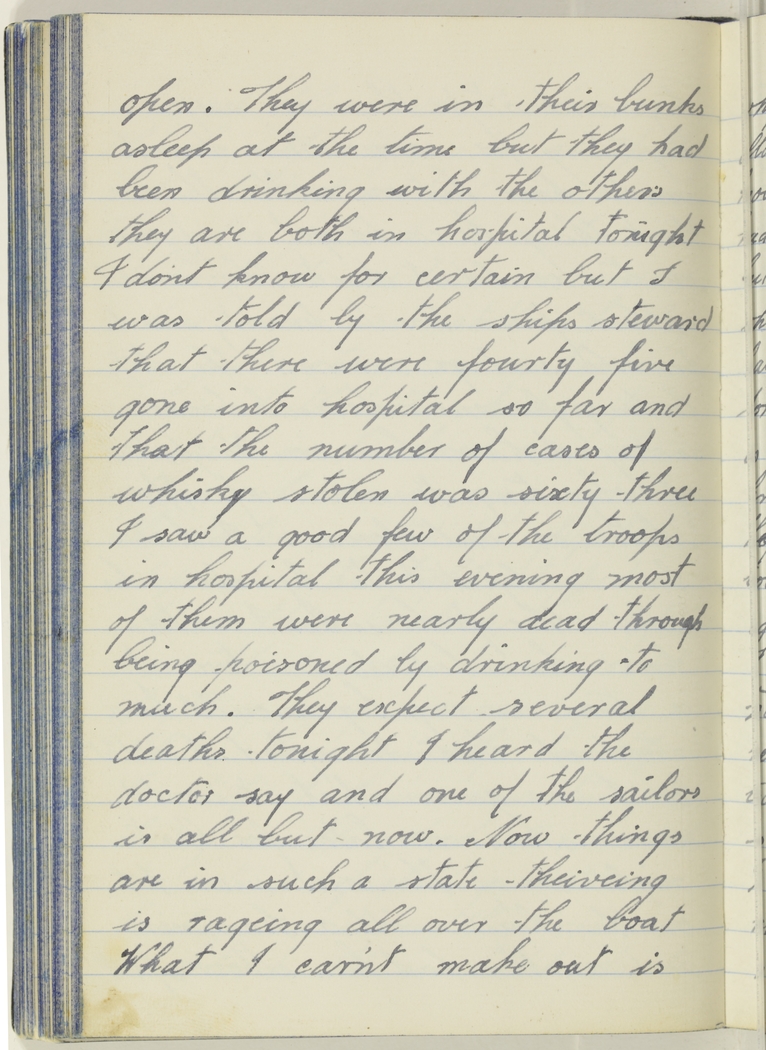 open. They were in their bunks
asleep at the time but they had
been drinking with the others
they are both in hospital tonight
I dont know for certain but I
was told by the ships steward
that there were fourty five
gone into hospital so far and
that the number of cases of
whisky stolen was sixty three
I saw a good few of the troops
in hospital this evening most
of them were nearly dead through
being poisoned by drinking to
much. They expect several
deaths tonight I heard the
doctor say and one of the sailors
is all but now. Now things
are in such a state theiveing
is rageing all over the boat
What I carn't make out is